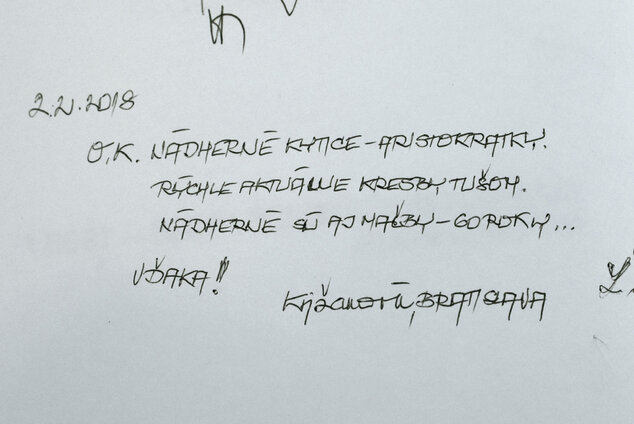 2.2.2018
O.K. NÁDHERNÉ KYTICE-ARISTOKRATKY.
RÝCHLE AKTUÁLNE KRESBY TUŠOM.
NÁDHERNÉ SÚ AJ MAĽBY-
VĎAKA!!
BRATISLAVA